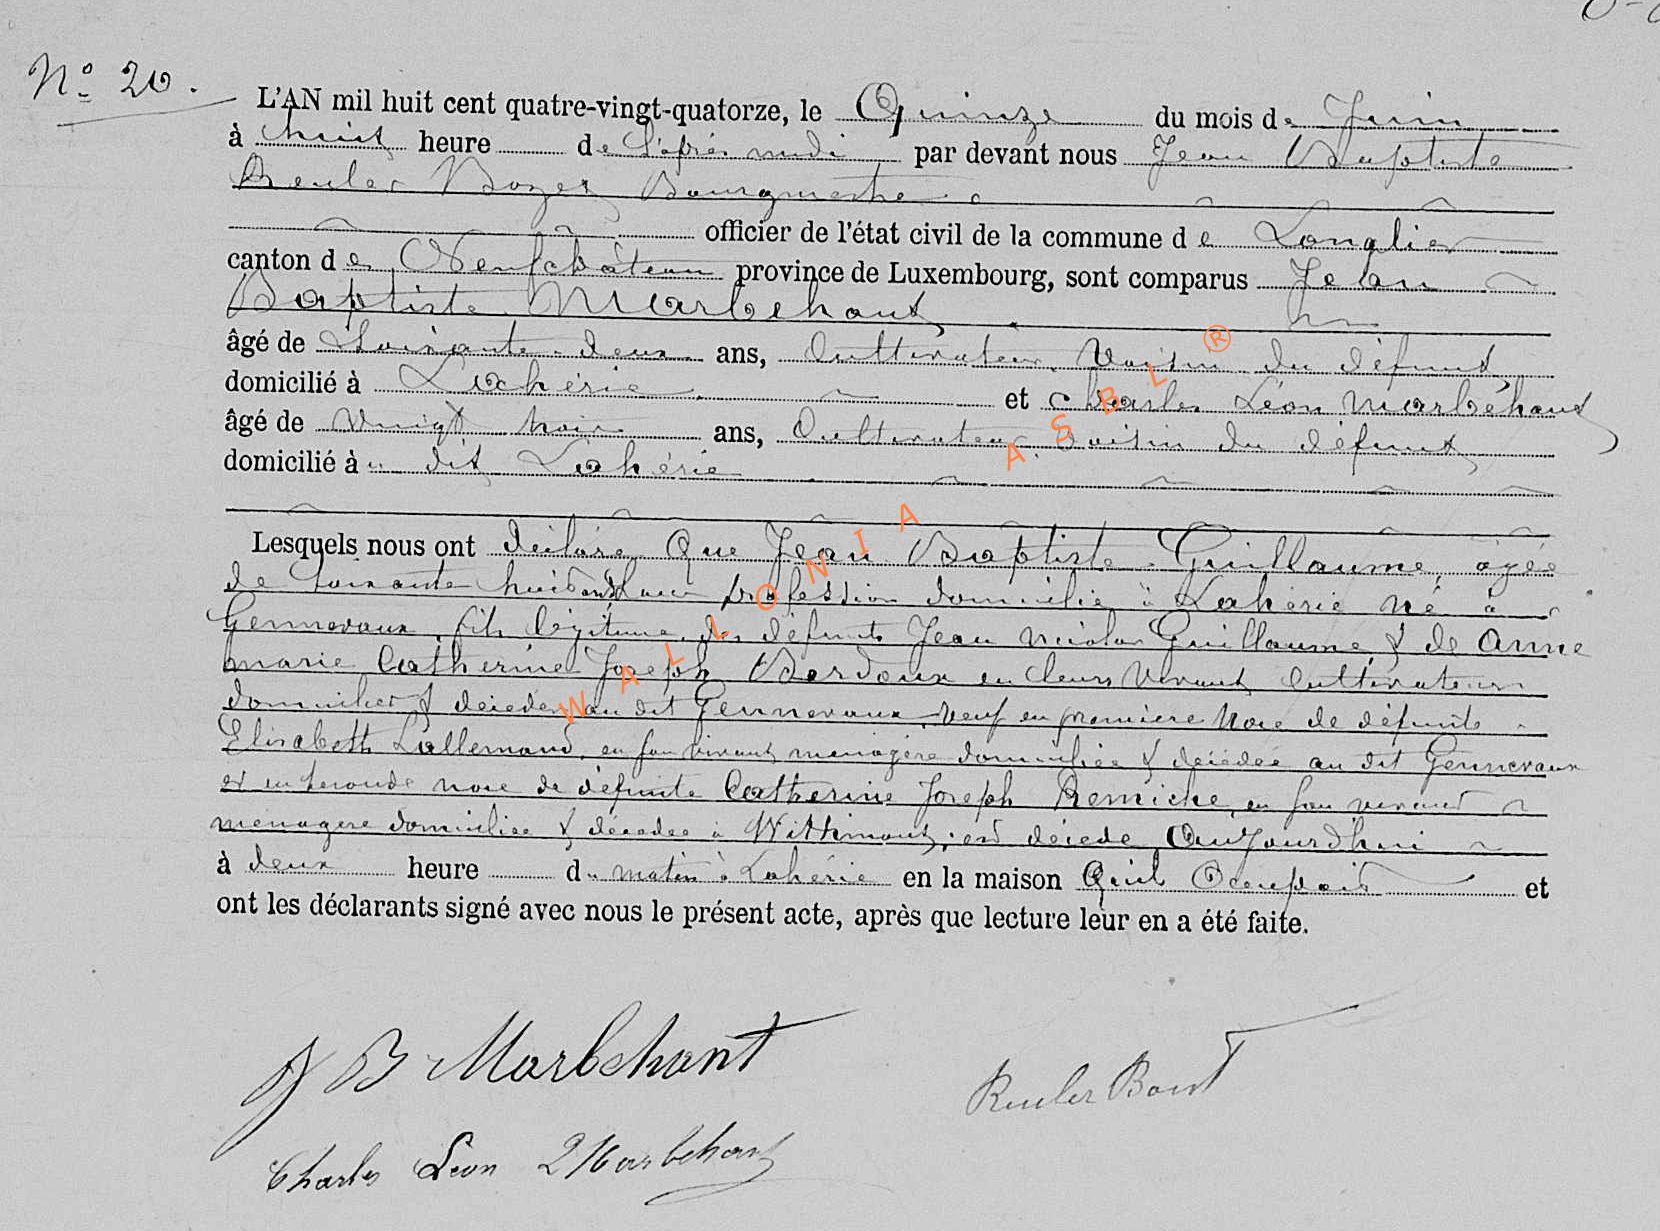 N° 20.
L'AN mil huit cent quatre-vingt-quatorze, le Quinze du mois de Juin
à huit heure de L'après midi par devant nous Jean Baptiste
Reuler Bourgmestre
officier de l'état civil de la commune de Longlier
canton de Neufchâteau province de Luxembourg, sont comparus Jean
Baptiste Marbehant
âgé de Soixante deux ans, Cultivateur, Voisin du défunt,
domicilié à Lahérie et Charles Léon Marbéhant
âgé de Vingt trois ans, Cultivateur voisin du défunt,
domicilié à u dit Lahérie
Lesquels nous ont déclaré Que Jean Baptiste Guillaume, agée
de Soixante huit ans profession domicilié à Lahérie Né à
Gennevaux, fils légitime des défunts Jean nicolas Guillaume & de Anne
marie Catherine Joseph Bardoux en leurs Vivant Cultivateurs
domiciliés & décédés au dit Gennevaux, Veuf en premiere Noce de défunte
Elisabeth Lallemand, en son vivant menagère domiciliée & décédée au dit Gennevaux
et en seconde noce de défunte Catherine Joseph Remiche, en son vivant
menagère domiciliée & décédée à Wittimont, est décédé Aujourdhui
à deux heure du matin à Lahérie en la maison Quil Occupait et
ont les déclarants signé avec nous le présent acte, après que lecture leur en a été faite.
J B Marbehant
Reuler
Charles Léon Marbehant
WALLONIA ASBL ®